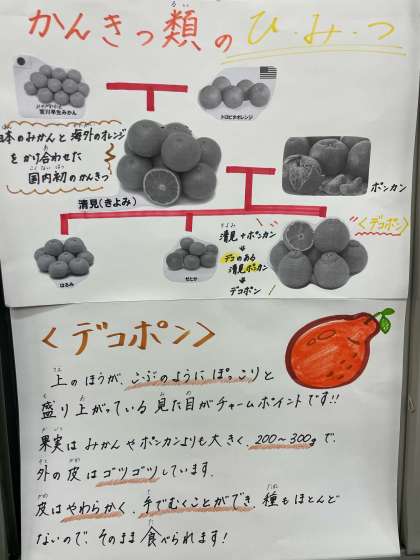 かんきつ類のひ・み・つ
るい
宮川早生みかん
トロビタオレンジ
日本のみかんと海外のオレンジ
をかけ合わせた
国内初のかんきつ
こくないはつ
清見(きよみ)
ポンカン
<デコポン>
はるみ
せとか
きよみ
清見+ポンカン
デコのある
清見ポンカン
デコポン!
<デコポン>
上のほうが、こぶのようにぽっこりと
盛り上がっている見た目がチャームポイントです!!
果実はみかんやポンカンよりも大きく、200~300gで、
外の皮はゴツゴツしています。
皮はやわらかく、手でむくことができ、種もほとんど
ないので、そのまま食べられます!